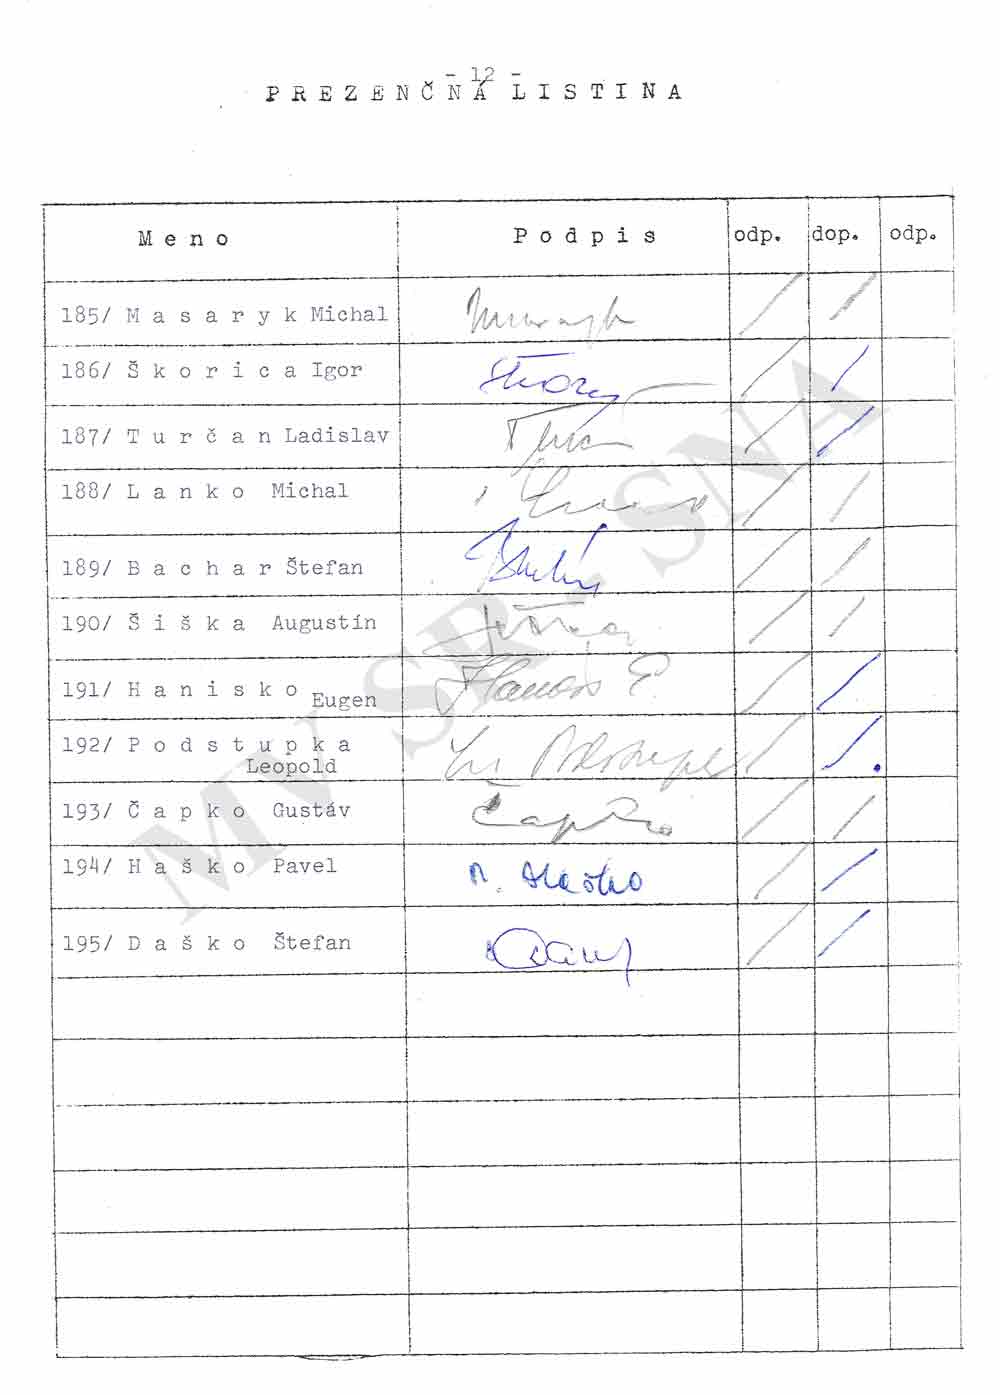 - 12 -
P R E Z E N Č N Á  L I S T I N A
M e n o  P o d p i s  odp.  dop.  odp.
185/ M a s a r y k Michal
186/ Š k o r i c a Igor
187/ T u r č a n Ladislav
188/ L a n k o  Michal
189/ B a c h a r Štefan
190/ Š i š k a  Augustín
191/ H a n i s k o
Eugen
192/ P o d s t u p k a
Leopold
193/ Č a p k o  Gustáv  Čapko
194/ H a š k o  Pavel  P. Haško
195/ D a š k o  Štefan
MV SR - SNA